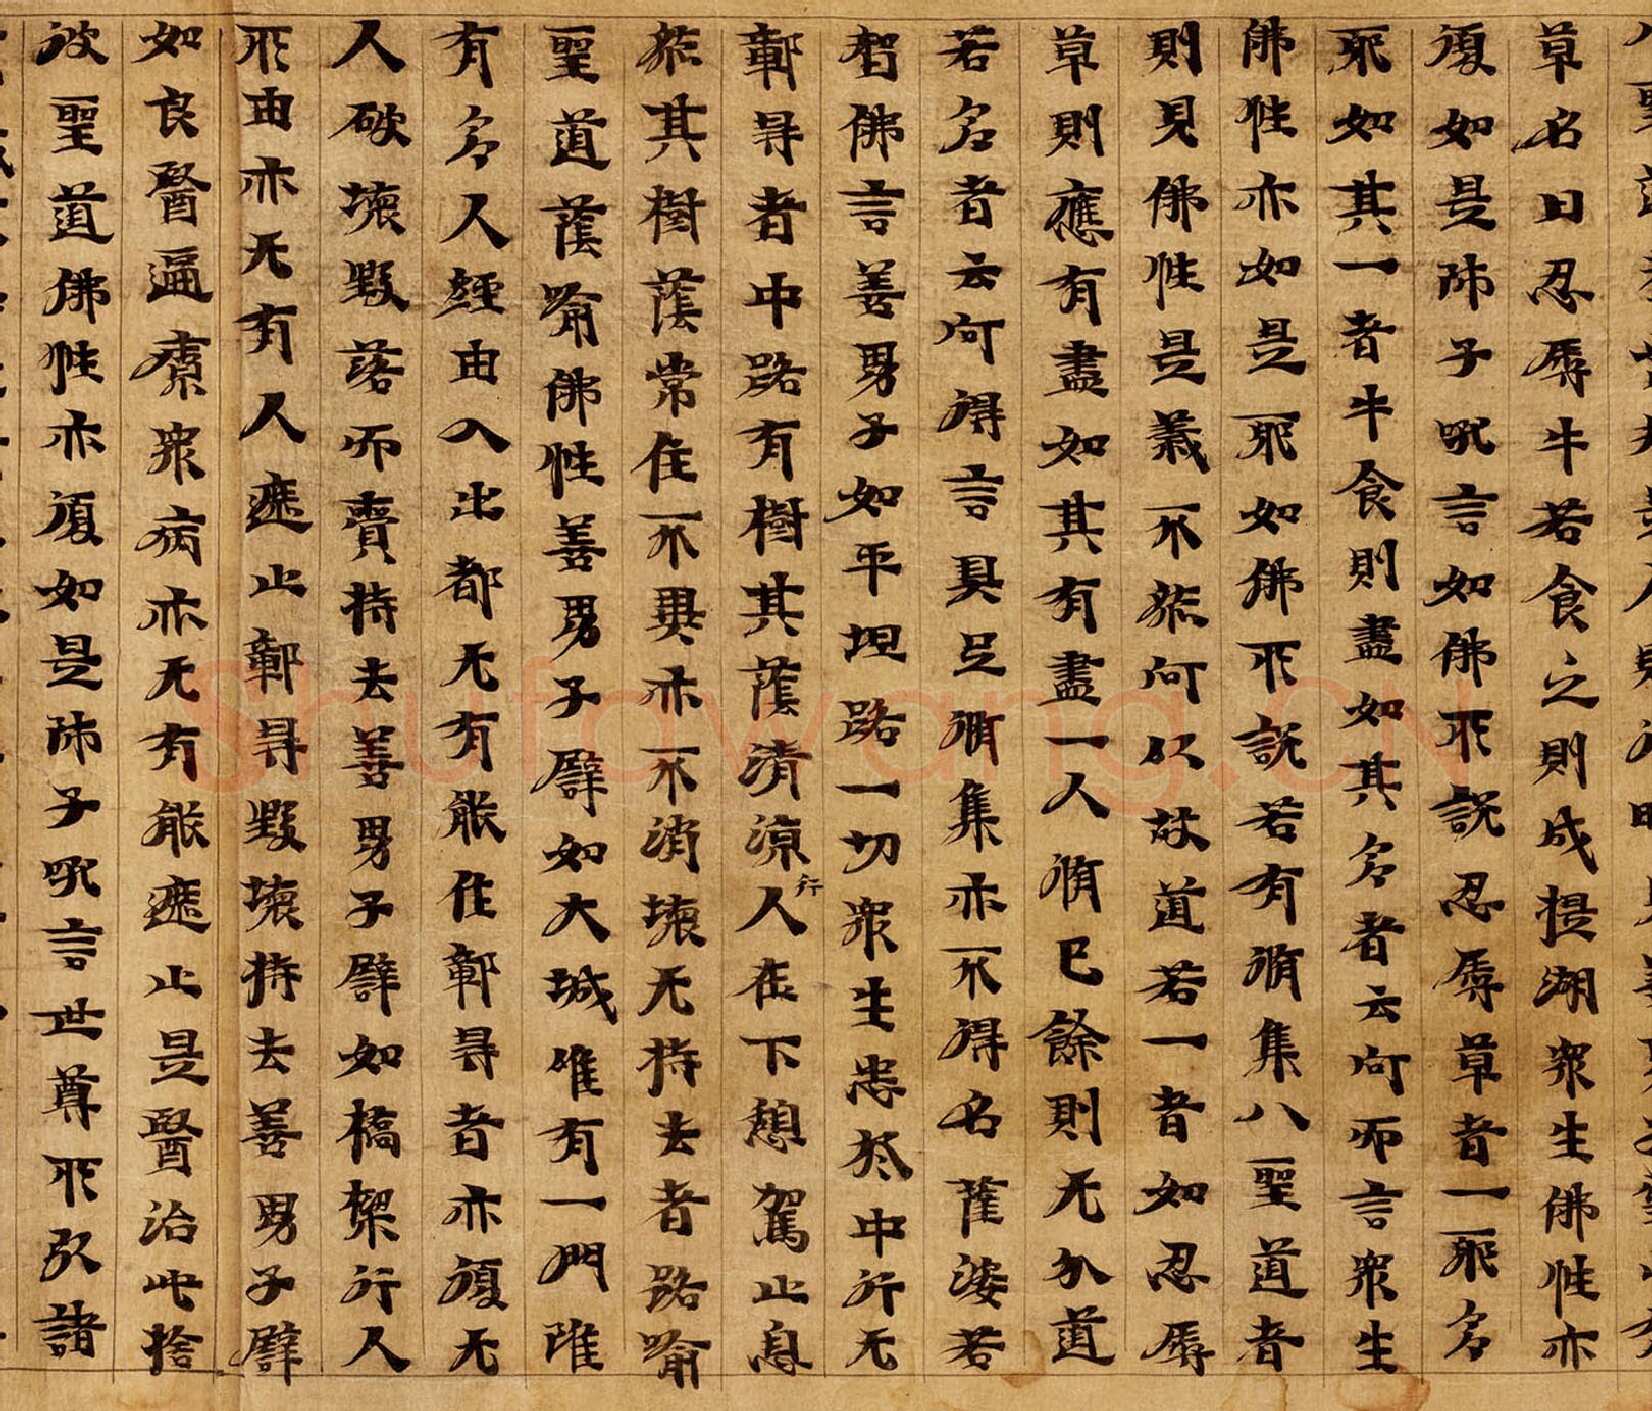 草名曰忍辱牛若食之則成提湖衆生佛性亦
復如是師子吼言如佛所說忍辱草者一耶多
耶如其一者牛食則盡如其多者云何而言衆生
佛性亦如是耶如佛所說若有脩集八聖道者
則見佛性是義不然何以故道若一者如忍辱
草則應有盡如其有盡一人脩已餘則无分道
若多者云何得言具足脩集亦不得名薩婆若
智佛言善男子如平坦路一切衆生悉於中行无
鄣㝵者中路有樹其蔭清涼行人在下憩駕止息
然其樹蔭常住不異亦不消壞无持去者路喻
聖道蔭喻佛性善男子譬如大城唯有一門雖
有多人經由入出都无有能作鄣㝵者亦復无
人破壞毀落而賷持去善男子譬如橋樑行人
所由亦无有人遮止鄣㝵毀壞持去善男子譬
如良醫遍療衆病亦无有能遮止是醫治此捨
彼聖道佛性亦復如是師子吼言世尊所引諸
shufawang.cn